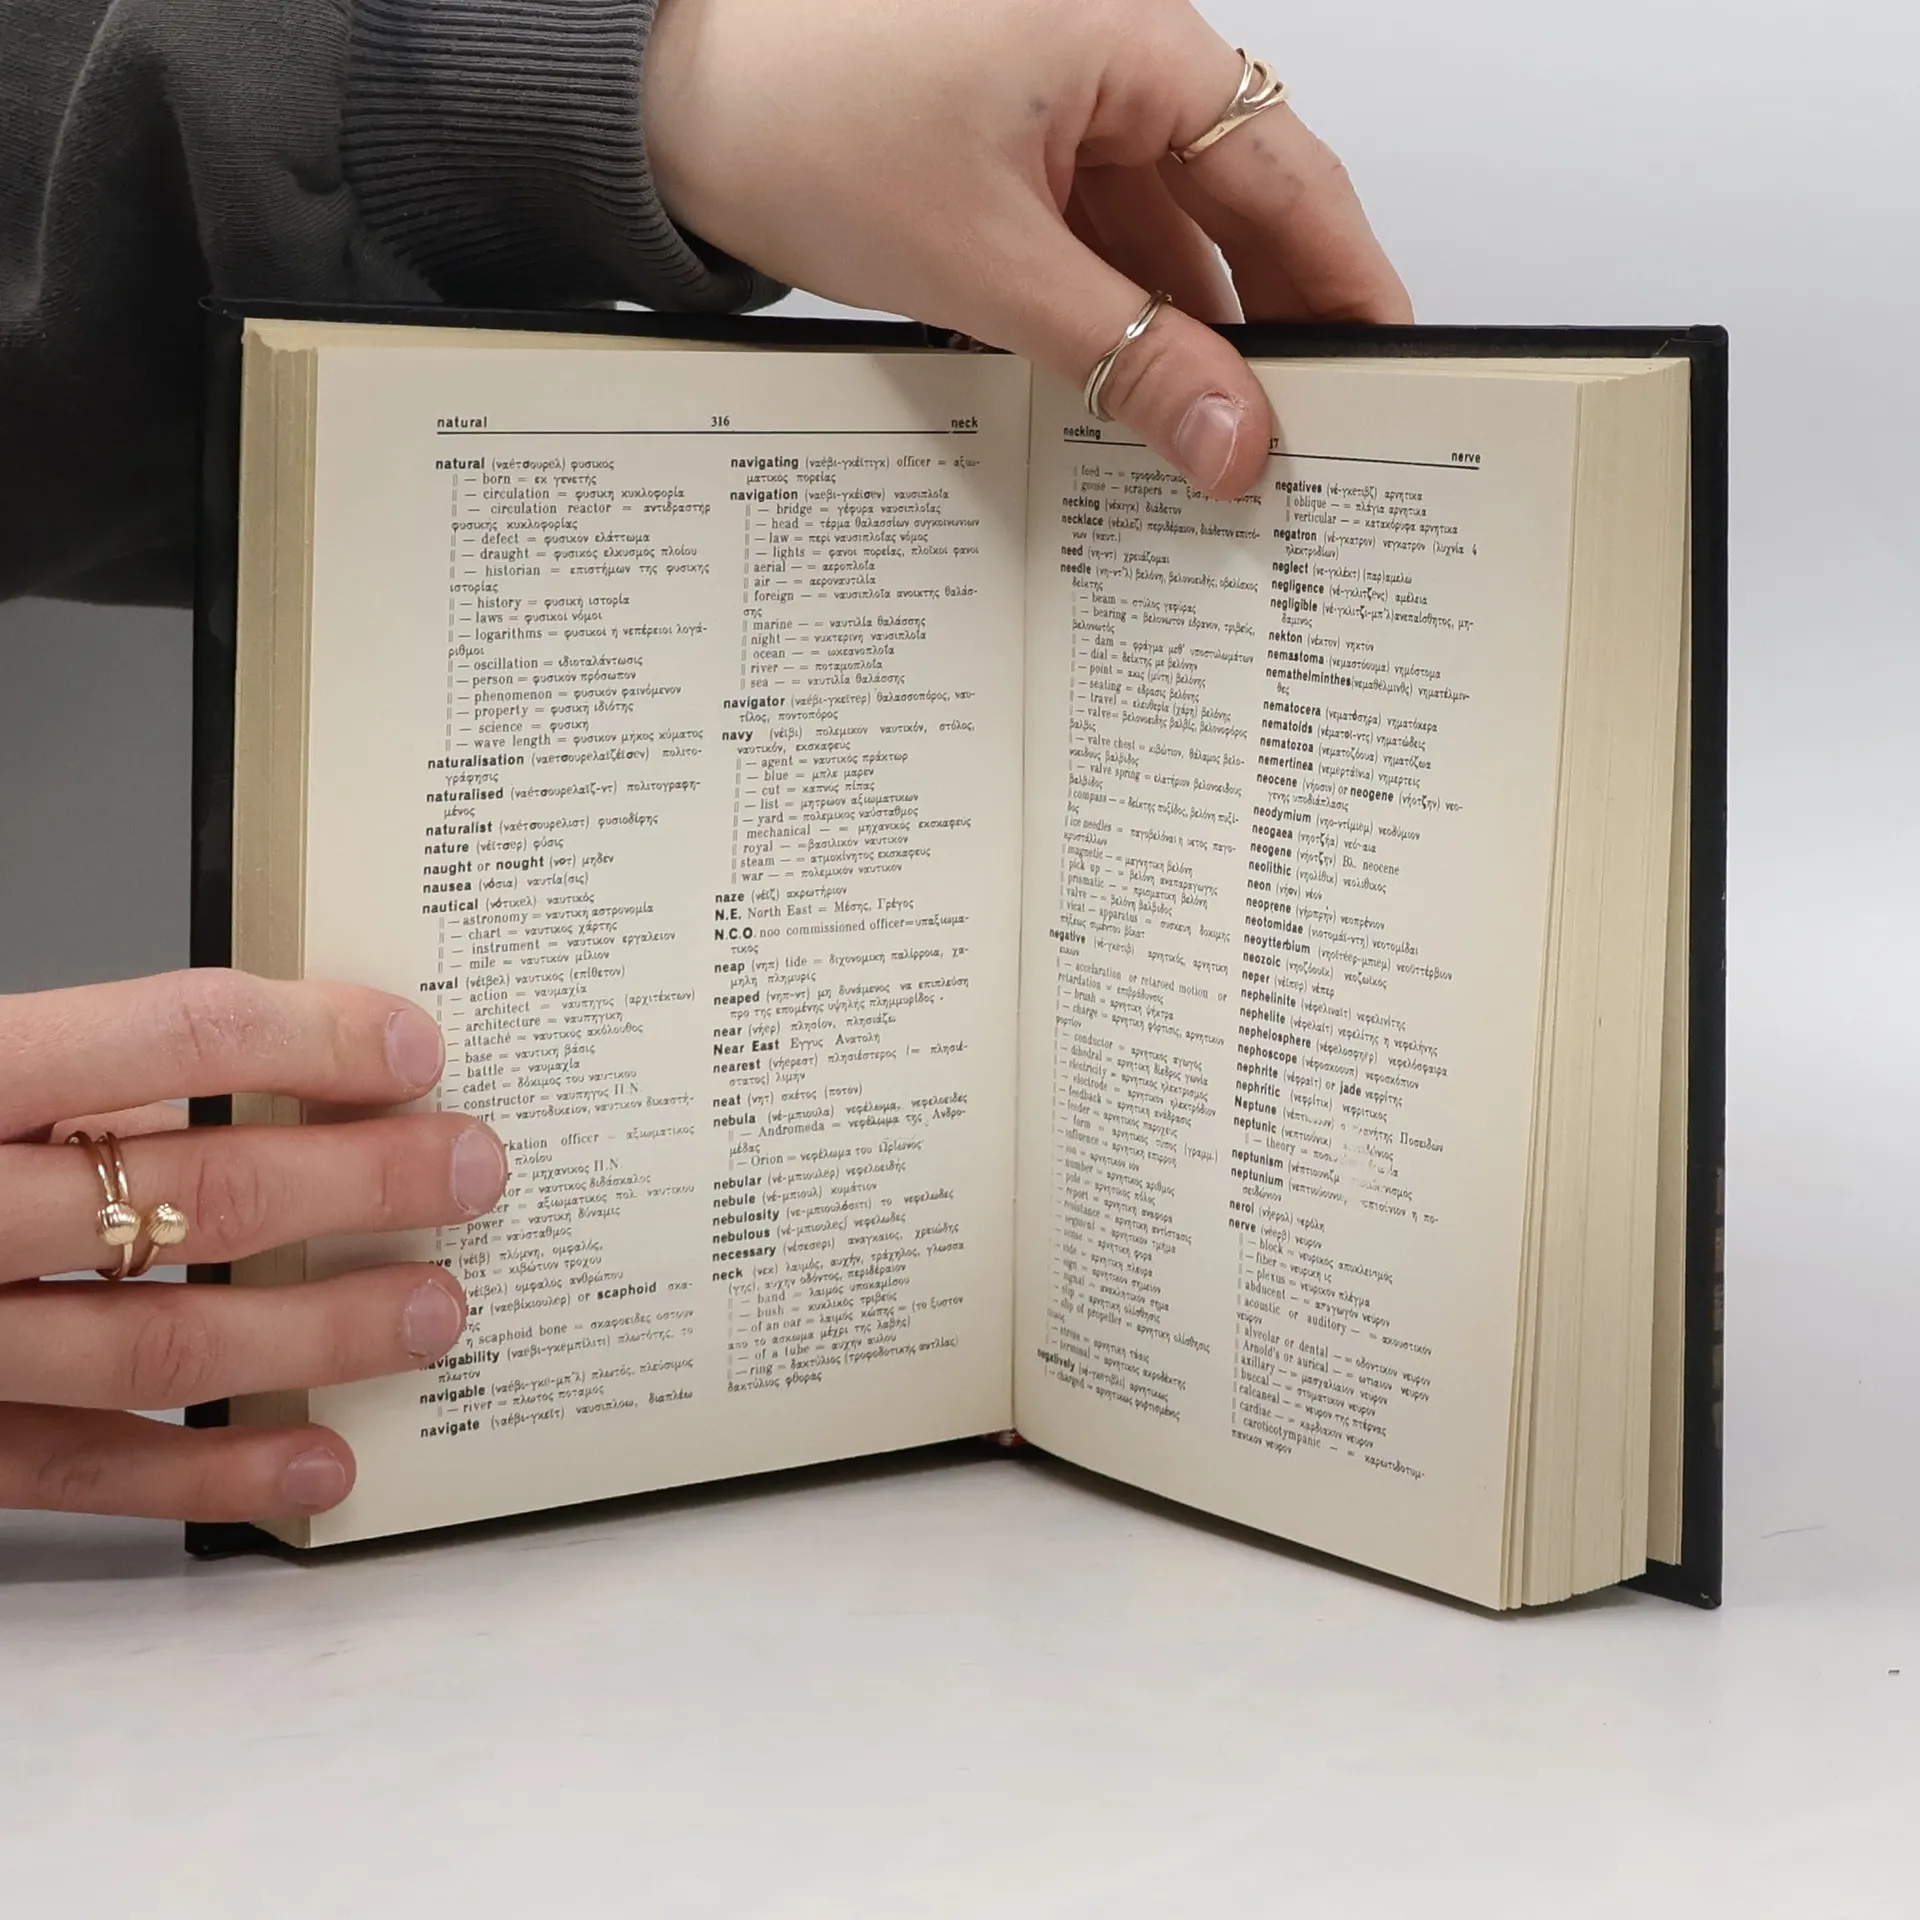 natural 316 neck
natural (ναέτσουρελ) φυσικός
‖ — born = εκ γενετής
‖ — circulation = φυσική κυκλοφορία
‖ — circulation reactor = αντιδραστήρ
φυσικής κυκλοφορίας
‖ — defect = φυσικόν ελάττωμα
‖ — draught = φυσικός ελκυσμός πλοίου
‖ — historian = επιστήμων της φυσικής
ιστορίας
‖ — history = φυσική ιστορία
‖ — laws = φυσικοί νόμοι
‖ — logarithms = φυσικοί ή νεπέρειοι λογά-
ριθμοι
‖ — oscillation = ιδιοταλάντωσις
‖ — person = φυσικόν πρόσωπον
‖ — phenomenon = φυσικόν φαινόμενον
‖ — property = φυσική ιδιότης
‖ — science = φυσική
‖ — wave length = φυσικόν μήκος κύματος
naturalisation (ναετσουρελαϊζέϊσεν) πολιτο-
γράφησις
naturalised (ναέτσουρελαϊζ-ντ) πολιτογραφη-
μένος
naturalist (ναέτσουρελιστ) φυσιοδίφης
nature (νέϊτσερ) φύσις
naught or nought (νοτ) μηδέν
nausea (νόσια) ναυτία(σις)
nautical (νότικελ) ναυτικός
‖ — astronomy = ναυτική αστρονομία
‖ — chart = ναυτικός χάρτης
‖ — instrument = ναυτικόν εργαλείον
‖ — mile = ναυτικόν μίλιον
naval (νέϊβελ) ναυτικός (επίθετον)
— action = ναυμαχία
— architect = ναυπηγός (αρχιτέκτων)
— architecture = ναυπηγική
— attaché = ναυτικός ακόλουθος
— base = ναυτική βάσις
— battle = ναυμαχία
— cadet = δόκιμος του ναυτικού
— constructor = ναυπηγός Π.Ν.
= ναυτοδικείον, ναυτικόν δικαστή-
officer = αξιωματικός
πλοίου
= μηχανικός Π.Ν.
= ναυτικός διδάσκαλος
= αξιωματικός πολ. ναυτικού
— power = ναυτική δύναμις
— yard = ναύσταθμος
(νέϊβ) πλήμνη, ομφαλός,
box = κιβώτιον τροχού
(νέϊβελ) ομφαλός ανθρώπου
(ναεβίκιουλερ) or scaphoid σκα-
η scaphoid bone = σκαφοειδές οστούν
navigability (ναεβι-γκεμπίλιτι) πλωτότης, το
πλωτόν
navigable (ναέβι-γκε-μπ'λ) πλωτός, πλεύσιμος
‖ — river = πλωτός ποταμός
navigate (ναέβι-γκεϊτ) ναυσιπλοώ, διαπλέω
navigating (ναέβι-γκέϊτιγκ) officer = αξιω-
ματικός πορείας
navigation (ναεβι-γκέϊσεν) ναυσιπλοΐα
‖ — bridge = γέφυρα ναυσιπλοΐας
‖ — head = τέρμα θαλασσίων συγκοινωνιών
‖ — law = περί ναυσιπλοΐας νόμος
‖ — lights = φανοί πορείας, πλοϊκοί φανοί
‖ aerial — = αεροπλοΐα
‖ air — = αεροναυτιλία
‖ foreign — = ναυσιπλοΐα ανοικτής θαλάσ-
σης
‖ marine — = ναυτιλία θαλάσσης
‖ night — = νυκτερινή ναυσιπλοΐα
‖ ocean — = ωκεανοπλοΐα
‖ river — = ποταμοπλοΐα
‖ sea — = ναυτιλία θαλάσσης
navigator (ναέβι-γκεϊτερ) θαλασσοπόρος, ναυ-
τίλος, ποντοπόρος
navy (νέϊβι) πολεμικόν ναυτικόν, στόλος,
ναυτικόν, εκσκαφεύς
‖ — agent = ναυτικός πράκτωρ
‖ — blue = μπλε μαρέν
‖ — cut = καπνός πίπας
‖ — list = μητρώον αξιωματικών
‖ — yard = πολεμικός ναύσταθμος
‖ mechanical — = μηχανικός εκσκαφεύς
‖ royal — =βασιλικόν ναυτικόν
‖ steam — = ατμοκίνητος εκσκαφεύς
‖ war — = πολεμικόν ναυτικόν
naze (νέϊζ) ακρωτήριον
N.E. North East = Μέσης, Γρέγος
N.C.O. noo commissioned officer=υπαξιωμα-
τικός
neap (νηπ) tide = διχονομική παλίρροια, χα-
μηλή πλημυρίς
neaped (νηπ-ντ) μη δυνάμενος να επιπλεύση
προ της επομένης υψηλής πλημμυρίδος
near (νήερ) πλησίον, πλησιάζω
Near East Εγγύς Ανατολή
nearest (νήερεστ) πλησιέστερος (= πλησιέ-
στατος) λιμήν
neat (νητ) σκέτος (ποτόν)
nebula (νέ-μπιουλα) νεφέλωμα, νεφελοειδές
‖ — Andromeda = νεφέλωμα της Ανδρο-
μέδας
‖ — Orion = νεφέλωμα του Ωρίωνος
nebular (νέ-μπιουλερ) νεφελοειδής
nebule (νέ-μπιουλ) κυμάτιον
nebulosity (νε-μπιουλόσιτι) το νεφελώδες
nebulous (νέ-μπιουλες) νεφελώδες
necessary (νέσεσερι) αναγκαίος, χρειώδης
neck (νεκ) λαιμός, αυχήν, τράχηλος, γλώσσα
(γης), αυχήν οδόντος, περιδέραιον
‖ — band = λαιμός υποκαμίσου
‖ — bush = κυκλικός τριβεύς
‖ — of an oar = λαιμός κώπης = (το ξύστον
από το άσκωμα μέχρι της λαβής)
‖ — of a tube = αυχήν αυλού
‖ — ring = δακτύλιος (τροφοδοτικής αντλίας)
δακτύλιος φθοράς
necking 17 nerve
‖ feed — = τροφοδοτικός
‖ goose — scrapers =
necking (νέκιγκ) διάδετον
necklace (νέκλεζ) περιδέραιον, διάδετον επιτό-
νων (ναυτ.)
need (νη-ντ) χρειάζομαι
needle (νη-ντ'λ) βελόνη, βελονοειδής, οβελίσκος
δείκτης
‖ — beam = στύλος γεφύρας
‖ — bearing = βελονωτόν έδρανον, τριβεύς,
βελονωτός
‖ — dam = φράγμα μεθ' υποστυλωμάτων
‖ — dial = δείκτης με βελόνην
‖ — point = ακίς (μύτη) βελόνης
‖ — seating = έδρασις βελόνης
‖ — travel = ελευθερία (χάρη) βελόνης
‖ — valve= βελονοειδής βαλβίς, βελονοφόρος
βαλβίς
‖ — valve chest = κιβώτιον, θάλαμος βελο-
νοειδούς βαλβίδος
‖ — valve spring = ελατήριον βελονοειδούς
βαλβίδος
‖ compass — = δείκτης πυξίδος, βελόνη πυξί-
δος
‖ ice needles = παγοβελόναι η υετός παγο-
κρυστάλλων
‖ magnetic — = μαγνητική βελόνη
‖ pick up — = βελόνη αναπαραγωγής
‖ prismatic — = πρισματική βελόνη
‖ valve — = βελόνη βαλβίδος
‖ vicat — apparatus = συσκευή δοκιμής
πήξεως σιμέντου βικάτ
negative (νέ-γκετιβ) αρνητικός, αρνητική
εικών
‖ — accelaration or retaroed motion or
retardation = επιβράδυνσις
‖ — brush = αρνητική ψήκτρα
‖ — charge = αρνητική φόρτισις, αρνητικόν
φορτίον
‖ — conductor = αρνητικός αγωγός
‖ — dihedral = αρνητική δίεδρος γωνία
‖ — electricity = αρνητικός ηλεκτρισμός
‖ — electrode = αρνητικόν ηλεκτρόδιον
‖ — feedback = αρνητική ανάδρασις
‖ — feeder = αρνητικός παροχεύς
‖ — form = αρνητικός τύπος (γραμμ.)
‖ — influence = αρνητική επιρροή
‖ — ion = αρνητικόν ιόν
‖ — number = αρνητικός αριθμός
‖ — pole = αρνητικός πόλος
‖ — report = αρνητική αναφορά
‖ — resistance = αρνητική αντίστασις
‖ — segment = αρνητικόν τμήμα
‖ — sense = αρνητική φορά
‖ — side = αρνητική πλευρά
‖ — sign = αρνητικόν σημείον
‖ — signal = ανακλητικόν σήμα
‖ — slip = αρνητική ολίσθησις
‖ — slip of propeller = αρνητική ολίσθησις
‖ — stress = αρνητική τάσις
‖ — terminal = αρνητικός ακροδέκτης
negatively (νέ-γκετιβλι) αρνητικώς
‖ — charged = αρνητικώς φορτισμένος
negatives (νέ-γκετιβζ) αρνητικά
‖ oblique — = πλάγια αρνητικά
‖ verticular — = κατακόρυφα αρνητικά
negatron (νέ-γκατρον) νεγκατρόν (λυχνία 4
ηλεκτροδίων)
neglect (νε-γκλέκτ) (παρ)αμελώ
negligence (νέ-γκλιτζενς) αμέλεια
negligible (νέ-γκλιτζι-μπ'λ)ανεπαίσθητος, μη-
δαμινός
nekton (νέκτον) νηκτόν
nemastoma (νεμαστόουμα) νημόστομα
nemathelminthes(νεμαθέλμινθς) νηματέλμιν-
θες
nematocera (νεματόσηρα) νηματόκερα
nematoids (νέματοϊ-ντς) νηματώδεις
nematozoa (νεματοζόουα) νηματόζωα
nemertinea (νεμερτάϊνια) νημερτείς
neocene (νήοσιν) or neogene (νήοτζην) νεο-
γενής υποδιάπλασις
neodymium (νηο-ντίμιεμ) νεοδύμιον
neogaea (νηοτζήα)
neogene (νήοτζην) Βλ. neocene
neolithic (νηολίθικ) νεολιθικός
neon (νήον) νέον
neoprene (νήοπρην) νεοπρένιον
neotomidae (νιοτομάϊ-ντη) νεοτομίδαι
neoytterbium (νηοϊτέερ-μπιεμ) νεοϋττέρβιον
neozoic (νηοζόουϊκ) νεοζωϊκός
neper (νέϊπερ) νέπερ
nephelinite (νέφελιναϊτ) νεφελινίτης
nephelite (νέφελαϊτ) νεφελίτης η νεφελήνης
nephelosphere (νέφελοσφηερ) νεφελόσφαιρα
nephoscope (νέφοσκοουπ) νεφοσκόπιον
nephrite (νέφραϊτ) or jade νεφρίτης
nephritic (νεφρίτικ) νεφριτικός
Neptune Ποσειδών
neptunic (νεπτιούνικ)
‖ — theory =
neptunism (νέπτιουνιζμ
neptunium (νεπτιούουνι η πο-
σειδώνιον
nerol (νήερολ) νερόλη
nerve (νήερβ) νεύρον
‖ — block = νευρικός αποκλεισμός
‖ — fiber = νευρική ις
‖ — plexus = νευρικόν πλέγμα
‖ abducent — = απαγωγόν νεύρον
‖ acoustic or auditory — = ακουστικόν
νεύρον
‖ alveolar or dental — = οδοντικόν νεύρον
‖ Arnold's or aurical — = ωτιαίον νεύρον
‖ axillary — = μασχαλιαίον νεύρον
‖ buccal — = στοματικόν νεύρον
‖ calcaneal — = νεύρον της πτέρνας
‖ cardiac — = καρδιακόν νεύρον
‖ caroticotympanic — = καρωτιδοτυμ-
πανικόν νεύρον